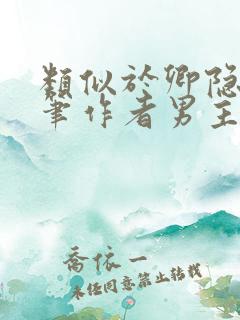 類似於卿隐
筆作者男主
喬依一
未经同意禁止转载